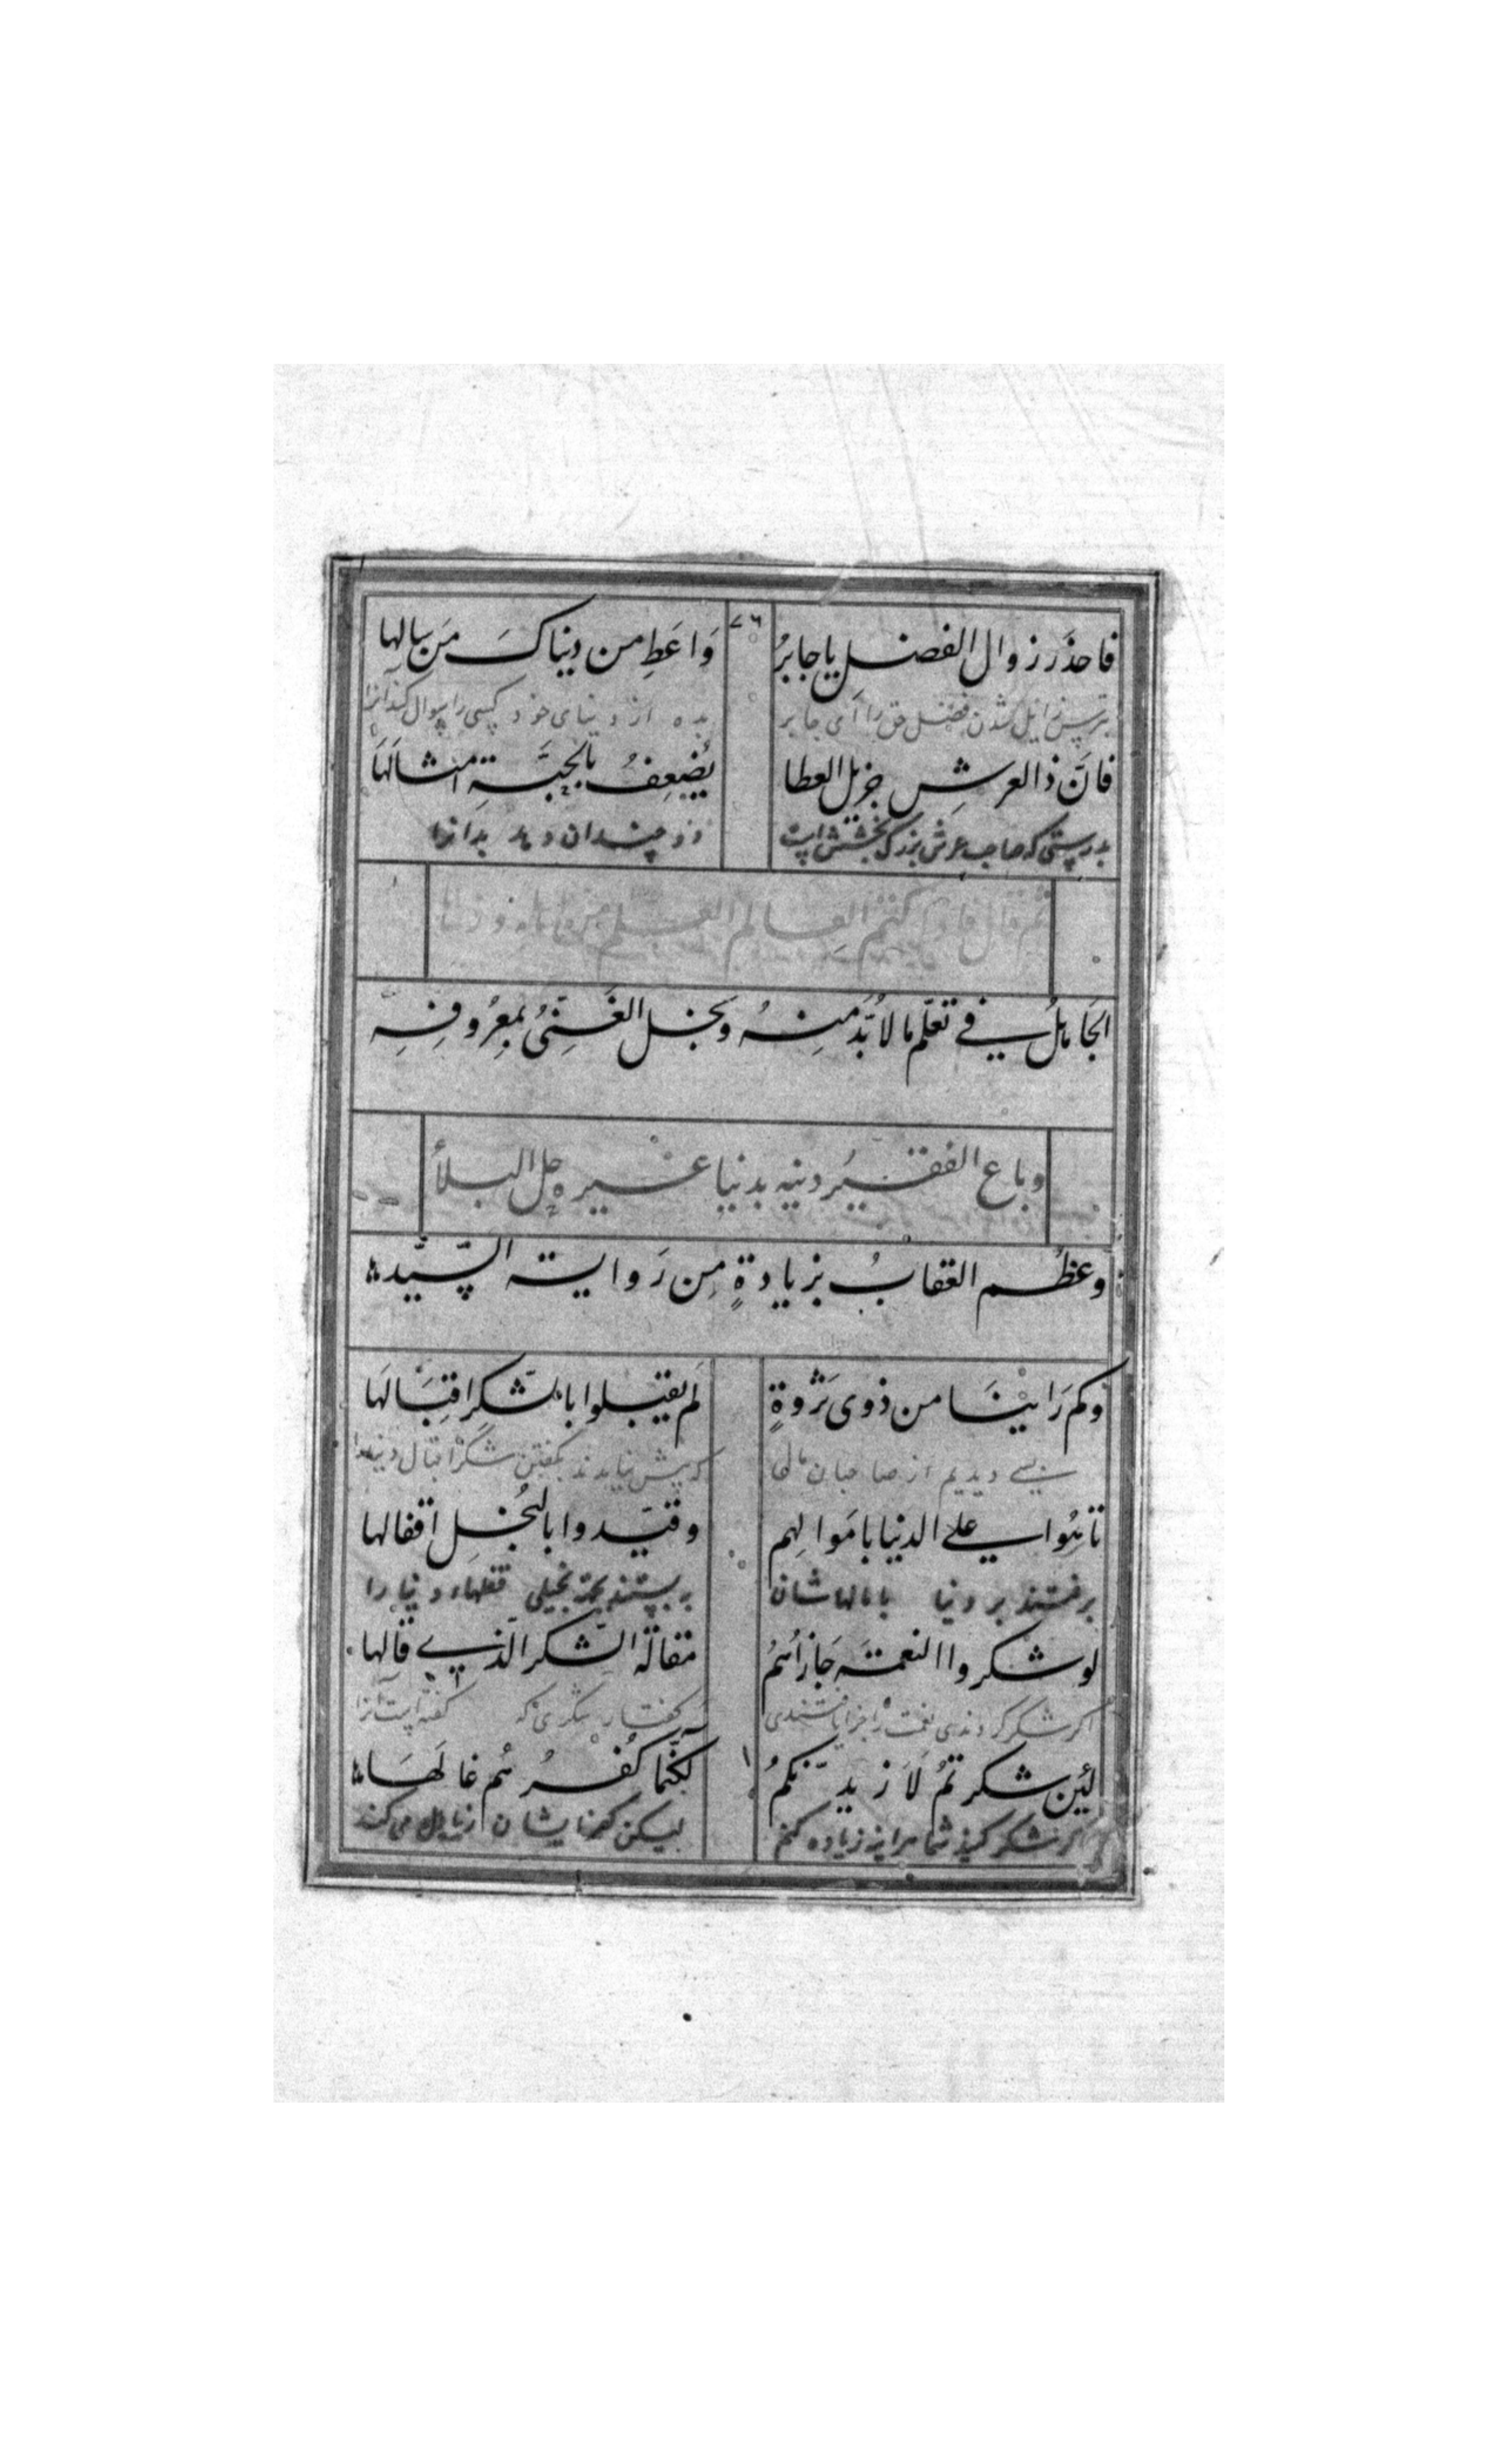 فاحذَر زوال الفضل یا جابرُ وَاعَطِ من دیناکَ مَن سالها
بترس زایل شدن فضل حق را ای جابر بده از دنیای خود کسی را سوال کند انرا
فانَّ ذالعرشِ جزیل العطا یُضعِفُ بالحبَّةِ امثالَهَا
بدرستی که صاحب عرش بزرگ بخشش است دو چندان دهد بدانرا
ثم قال کتم العالم العلم
الجَاهلُ فی تعلّم مالاُبَّد مِنهُ وَبخل الغَنِیُّ بمعرُوفِهِ
وباع الفقیرُ دینه بدنیا غیره حل البلأ
وعظُم العقابُ بزیادةٍ مِن رَوایته السّیّد
وکم رَاینَا من ذوی ثَرْوةٍ لَم یقبلوا بالشّکرِ اقِبَالَها
بسی دیدیم از صاحبان مالها که پیش نیایدند بگفتن شکر اقبال دنیا
تاهُوا علی الدنیا بامَوالِهم وقیّدوا بالبُخلِ اقفالها
برفتند بر دنیا بامالهاشان ببستند بخیلی قفلهاء دنیا را
لوشکروا النعمَته جَازاهُم مقالَة الشّکر الّذی قالها
اکر شکر کردندی نعمت را جزا یافتندی کفتار شکری که کفته است انرا
لئِن شکرتمُ لَازیدَّنکمُ لٰکنّما کُفرُهُم غالَهَا
اکر شکر کنید شما هراینه زیاده کنم لیکن کفر ایشان زایل می کند